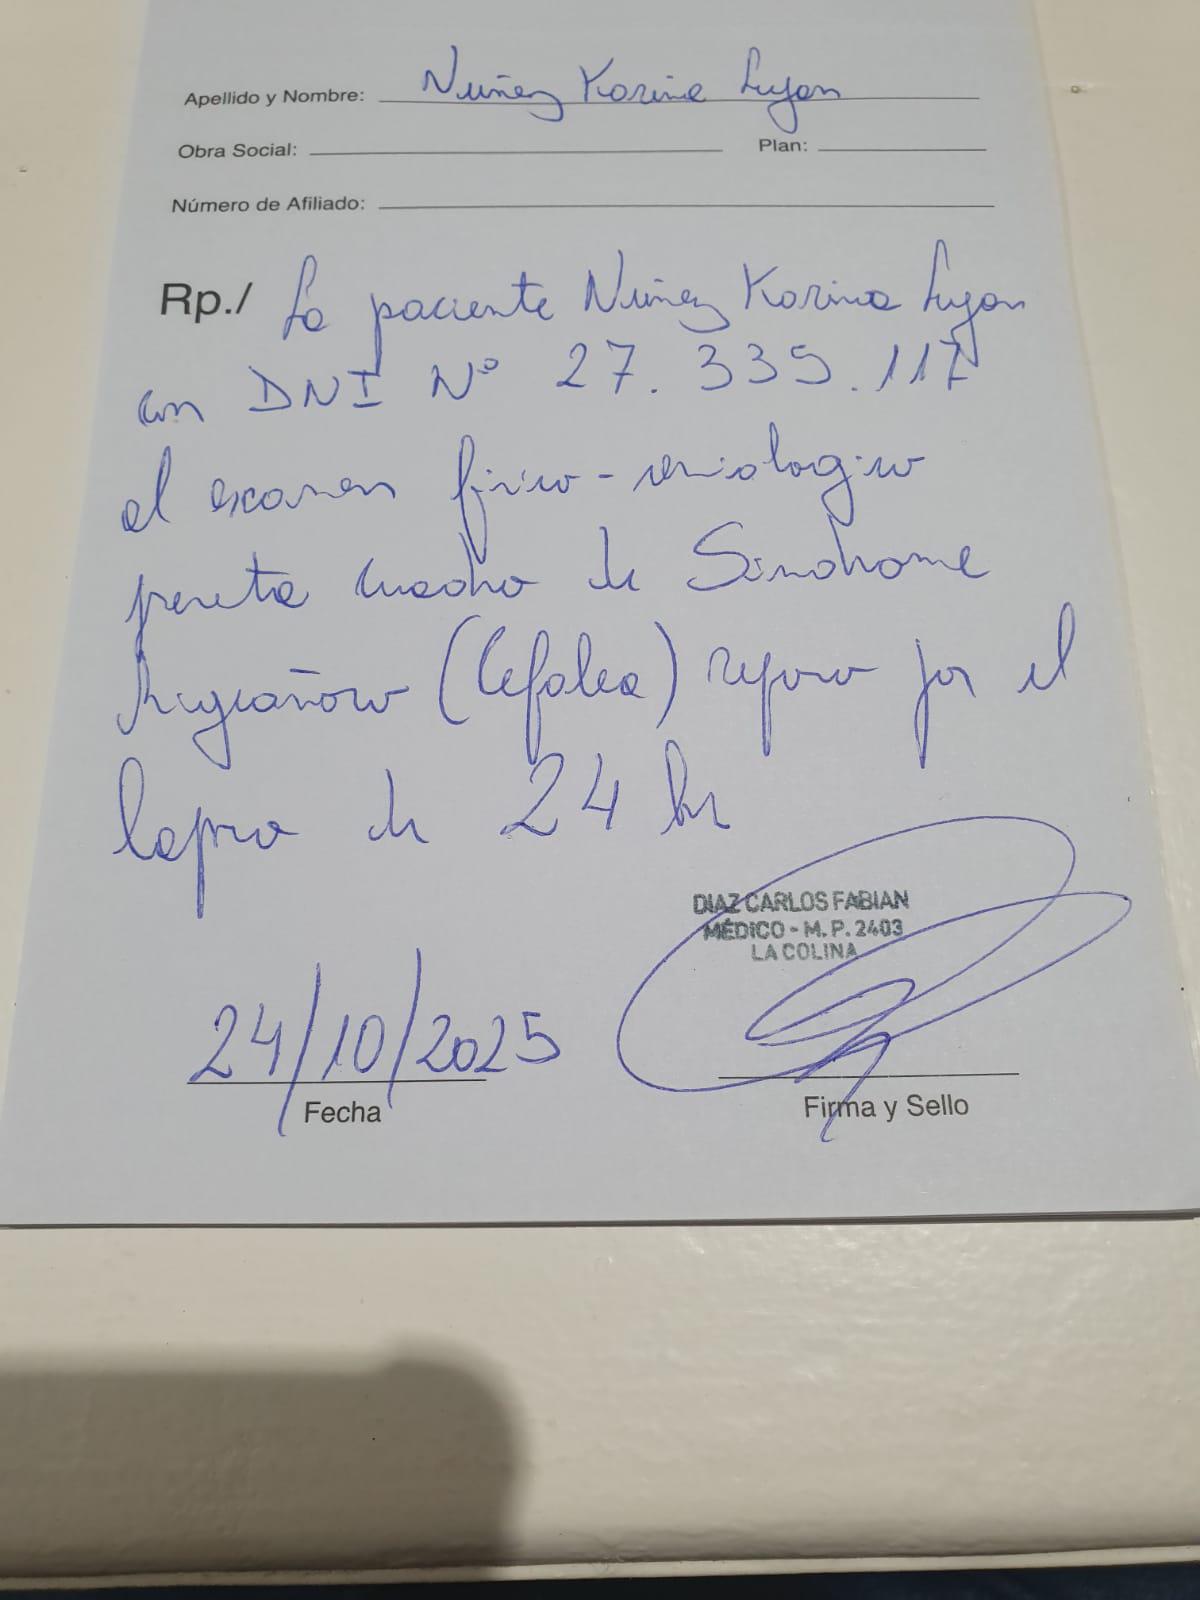 Apellido y Nombre: Nuñez Karina Lujan
Obra Social: Plan:
Número de Afiliado:
Rp./ La paciente Nuñez Karina Lujan
con DNI Nº 27.335.117
al examen fisico-semiologico
presenta cuadro de Sindrome
Migrañoso (Cefalea) reposo por el
lapso de 24 hs
DIAZ CARLOS FABIAN
MÉDICO - M.P. 2403
LA COLINA
24/10/2025
Fecha Firma y Sello